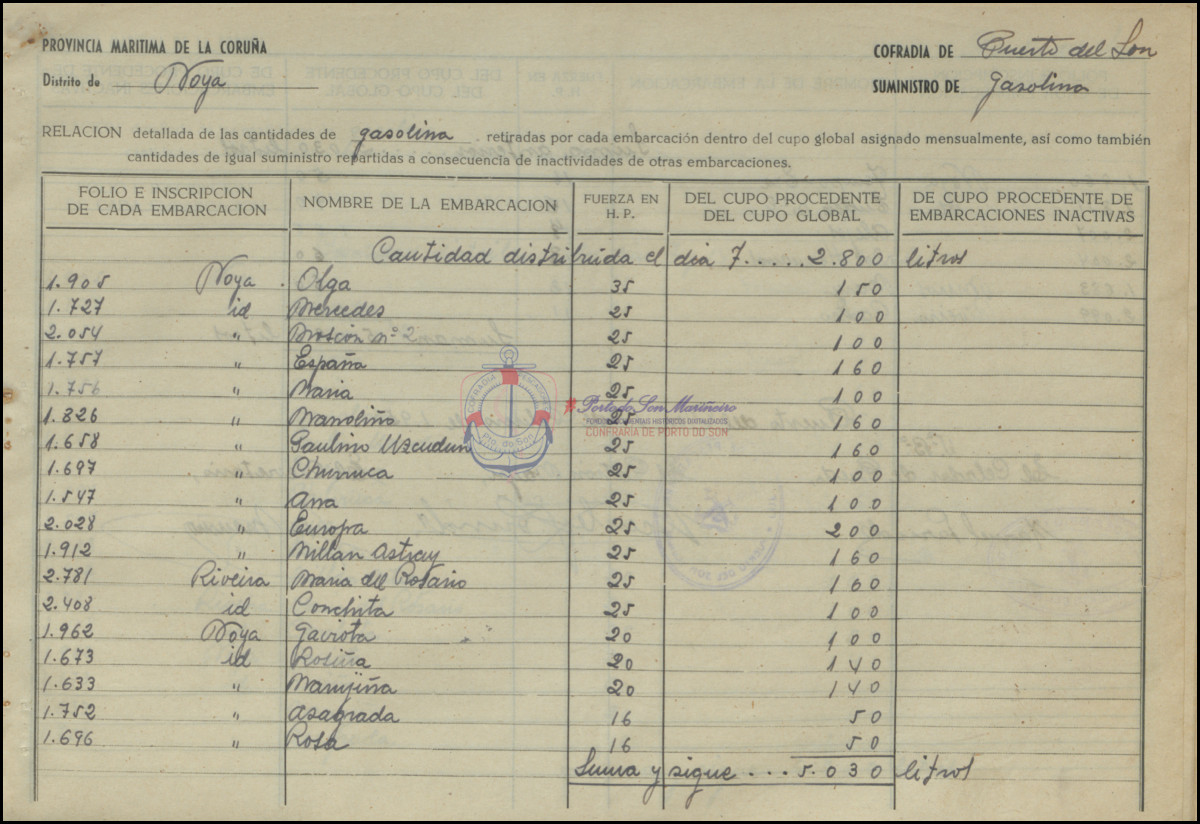 PROVINCIA MARITIMA DE LA CORUÑA
COFRADIA DE Puerto del Son
Distrito de Noya
SUMINISTRO DE gasolina
RELACION detallada de las cantidades de gasolina retiradas por cada embarcación dentro del cupo global asignado mensualmente, así como también
cantidades de igual suministro repartidas a consecuencia de inactividades de otras embarcaciones.
FOLIO E INSCRIPCION DE CADA EMBARCACION NOMBRE DE LA EMBARCACION FUERZA EN H. P. DEL CUPO PROCEDENTE DEL CUPO GLOBAL DE CUPO PROCEDENTE DE EMBARCACIONES INACTIVAS
Cantidad distribuida el dia 7.....2.800 litros
1.905 Noya Olga 35 150
1.727 id Mercedes 25 100
2.054 " nº 2 25 100
1.757 " España 25 160
1.756 " Maria 25 100
1.826 " Manoliño 25 160
1.658 " Paulino Uzcudun 25 160
1.697 " Churruca 25 100
1.547 " Ana 25 100
2.028 " Europa 25 200
1.912 " Millan Astray 25 160
2.781 Riveira Maria del Rosario 25 160
2.408 id Conchita 25 100
1.962 Noya Gaviota 20 100
1.673 id Rosiña 20 140
1.633 " Marujiña 20 140
1.752 " Asagrada 16 50
1.696 " Rosa 16 50
Suma y sigue ... 5.030 litros
COFRADIA PESCADORES
Pto. do Son
Porto do Son Mariñeiro
FUNDOS DOCUMENTAIS HISTÓRICOS DIXITALIZADOS
CONFRARÍA DE PORTO DO SON